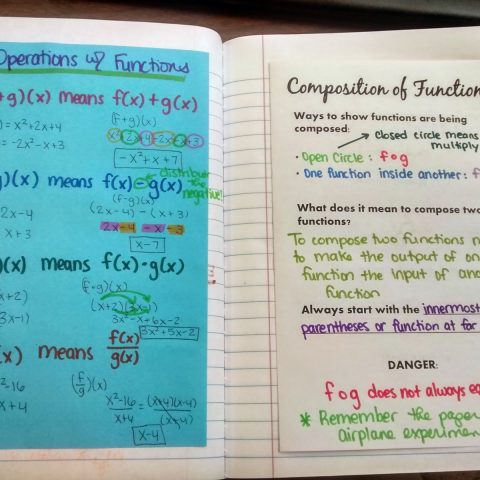 Operations w/ Functions
+g)(x) means f(x)+g(x)
) = x²+2x+4
= -2x²-x+3
(f+g)(x)
x²+2x+4-2x²-x+3
-x²+x+7
g)(x) means f(x)-g(x)
distribute the negative!
(f-g)(x)
2x-4
x+3
(2x-4)-(x+3)
2x-4-x-3
x-7
)(x) means f(x)·g(x)
(f·g)(x)
x+2)
3x-1)
(x+2)(3x-1)
3x²-x+6x-2
3x²+5x-2
(x) means f(x)/g(x)
²-16
x+4
(f/g)(x)
x²-16/x+4 = (x+4)(x-4)/(x+4)
x-4
Composition of Function
Ways to show functions are being
composed:
closed circle means
multiply
· Open Circle: fog
· One function inside another: f
What does it mean to compose two
functions?
To compose two functions
to make the output of
function the input of
function
Always start with the innermost
parentheses or function at far
DANGER:
fog does not always
* Remember the paper
airplane experiment